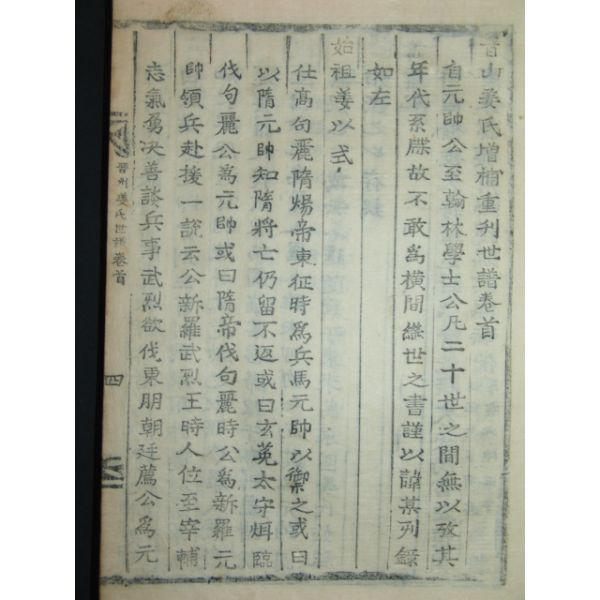 晉山姜氏增補重刋世譜卷首
自元帥公至翰林學士公凡二十世之間無以攷其
年代系牒故不敢爲橫間繼世之書謹以諱某列錄
如左
始祖姜以式
仕高句麗隋煬帝東征時爲兵馬元帥以禦之或曰
以隋元帥知隋將亡仍留不返或曰玄莬太守姐臨
伐句麗公爲元帥或曰隋帝伐句麗時公爲新羅元
帥領兵赴援一說云公新羅武烈王時人位至宰輔
志氣勇决善談兵事武烈欲伐東明朝廷薦公爲元
晋州姜氏世譜 卷首 四